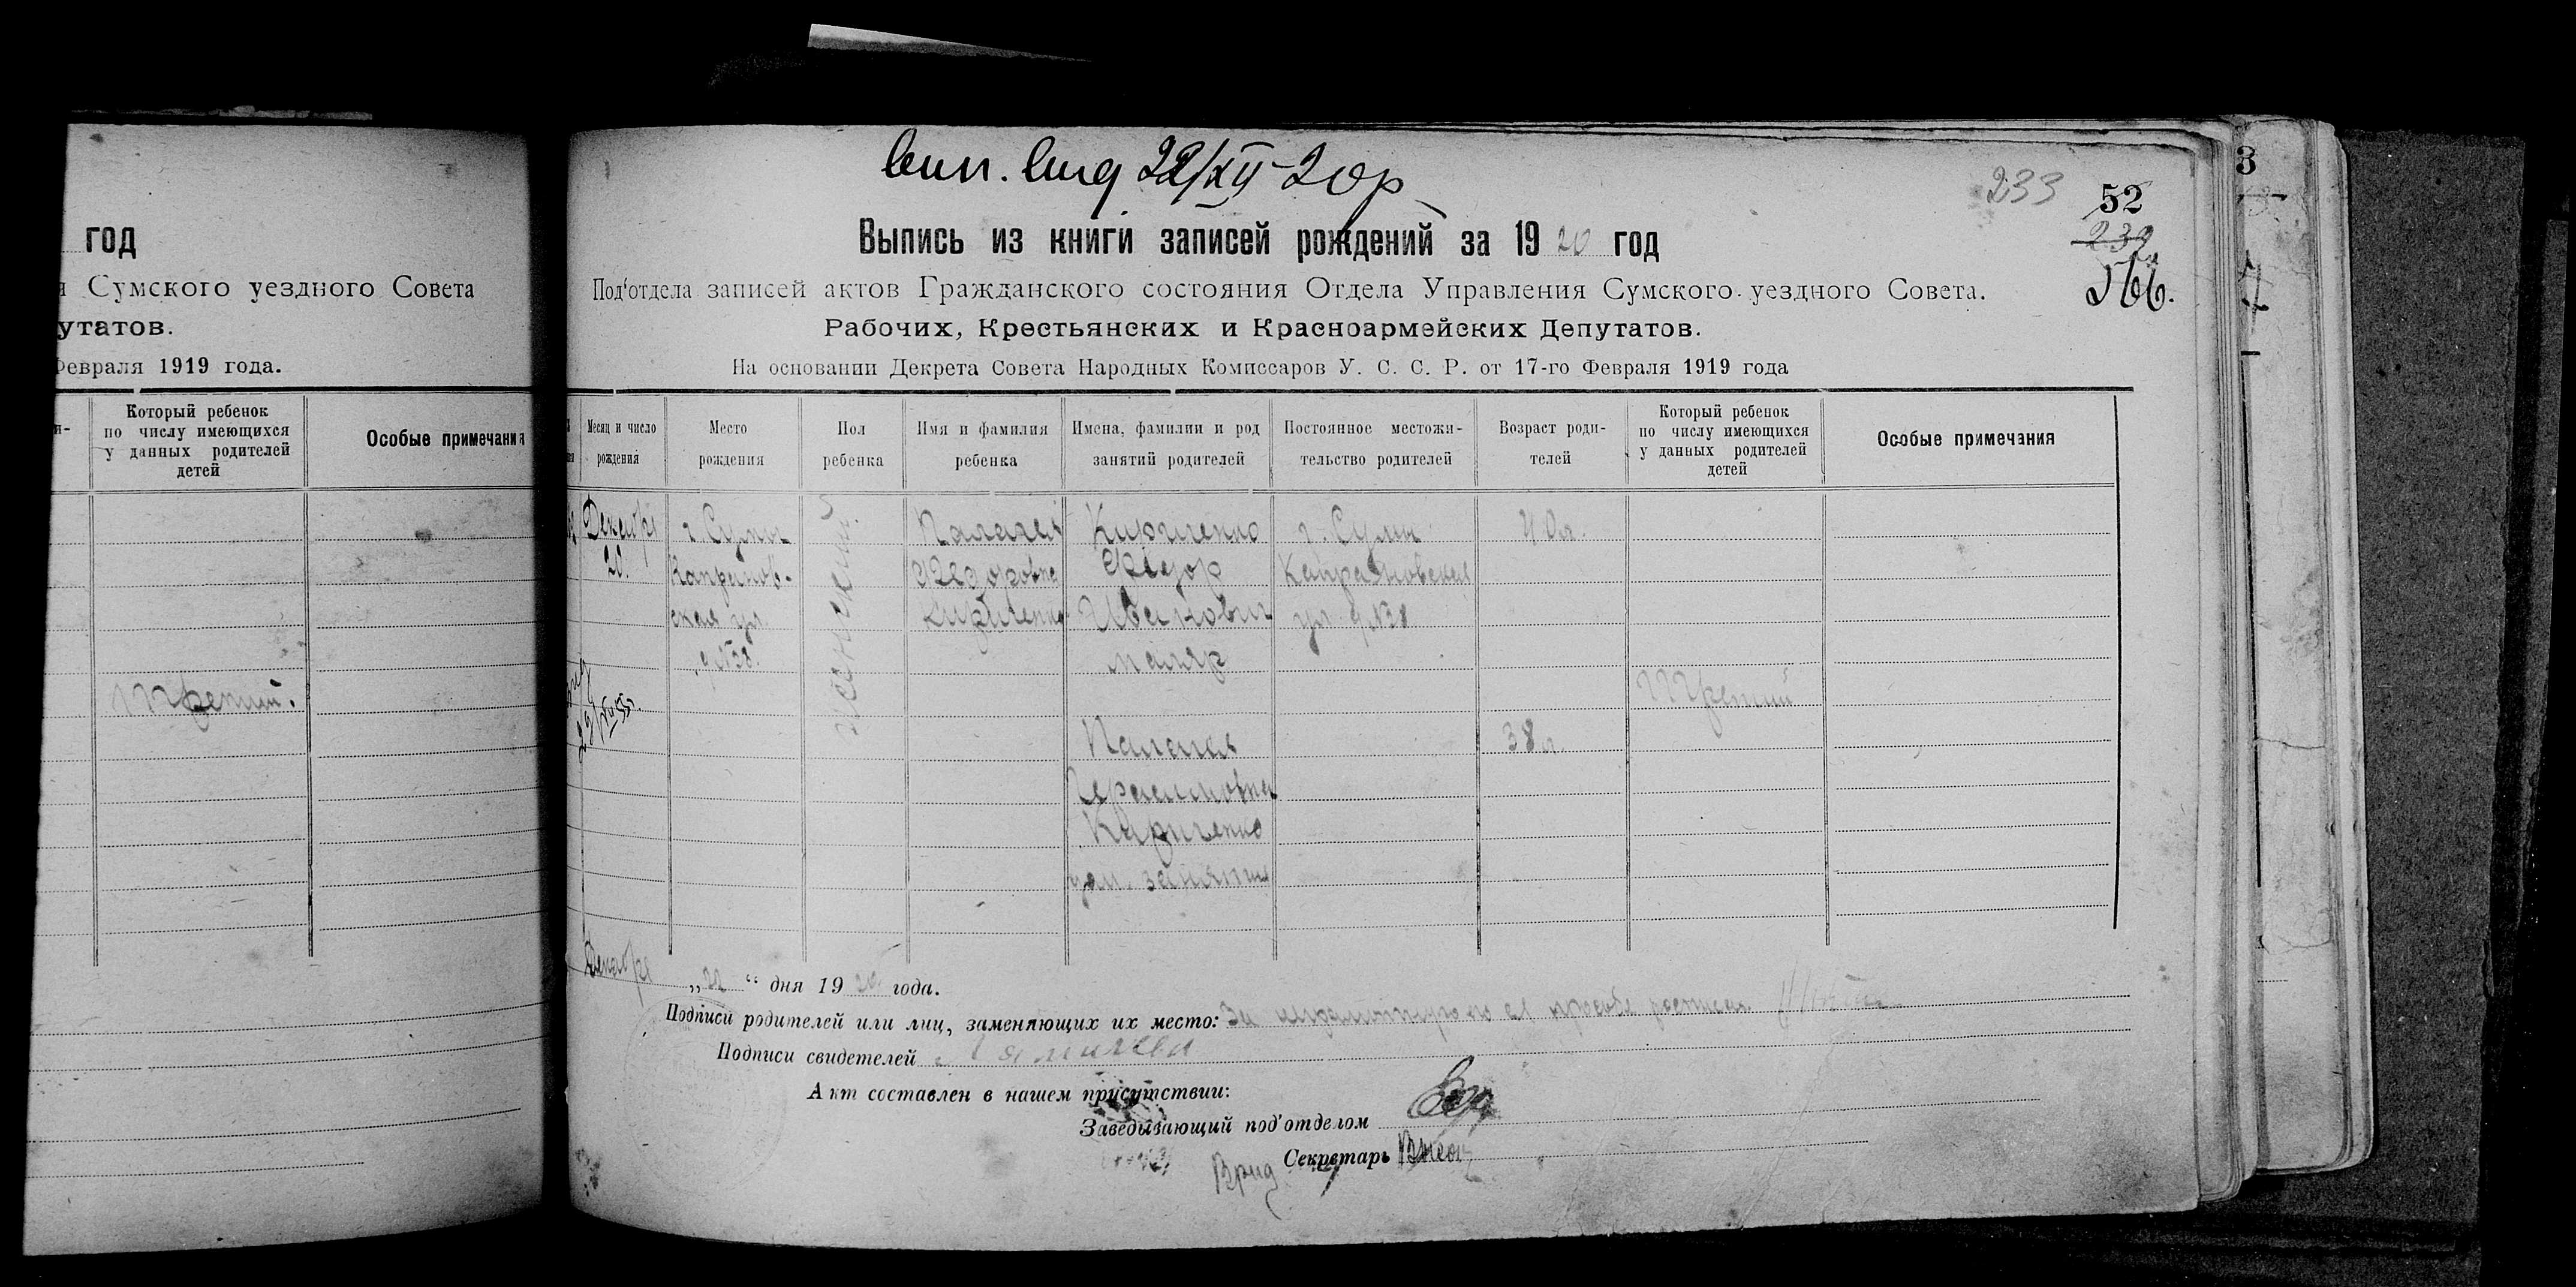 год
Сумского уездного Совета
утатов.
Февраля 1919 года.
Который ребенок
по числу имеющихся
у данных родителей
детей
Особые примечания
Третий.
22/XII-20р
233
52
232
566.
Выпись из книги записей рождений за 1920 год
Под'отдела записей актов Гражданского состояния Отдела Управления Сумского уездного Совета.
Рабочих, Крестьянских и Красноармейских Депутатов.
На основании Декрета Совета Народных Комиссаров У. С. С. Р. от 17-го Февраля 1919 года
Месяц и число
рождения
Место
рождения
Пол
ребенка
Имя и фамилия
ребенка
Имена, фамилии и род
занятий родителей
Постоянное местожи-
тельство родителей
Возраст роди-
телей
Который ребенок
по числу имеющихся
у данных родителей
детей
Особые примечания
Декабр
20.
г. Сумы
ская ул.
д. №38.
женский.
Палагея
Федоровна
Кириченко
Кириченко
Федор
Иванович
маляр
г. Сумы
ул. д. №38
40 л.
Третий
Палагея
Герасимовна
Кириченко
дом. занятия
38 л.
Декабря „22“ дня 1920 года.
Подписи родителей или лиц, заменяющих их место: За неграмотную по ее просьбе
Подписи свидетелей
Акт составлен в нашем присутствии:
Заведывающий под'отделом
Врид Секретарь
3